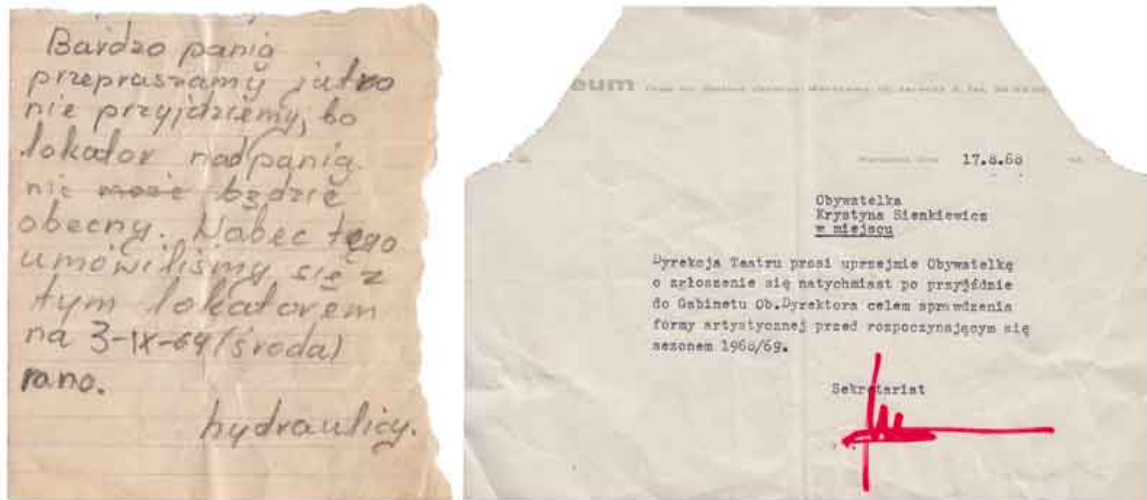 Bardzo panią
przepraszamy jutro
nie przyjdziemy, bo
lokator nad panią
nie może będzie
obecny. Wobec tego
umówiliśmy się z
tym lokatorem
na 3-IX-69 (środa)
rano.
hydraulicy.
eum
17.8.68
Obywatelka
Krystyna Sienkiewicz
w miejscu
Dyrekcja Teatru prosi uprzejmie Obywatelkę
o zgłoszenie się natychmiast po przyjściu
do Gabinetu Ob.Dyrektora celem sprawdzenia
formy artystycznej przed rozpoczynającym się
sezonem 1968/69.
Sekretariat